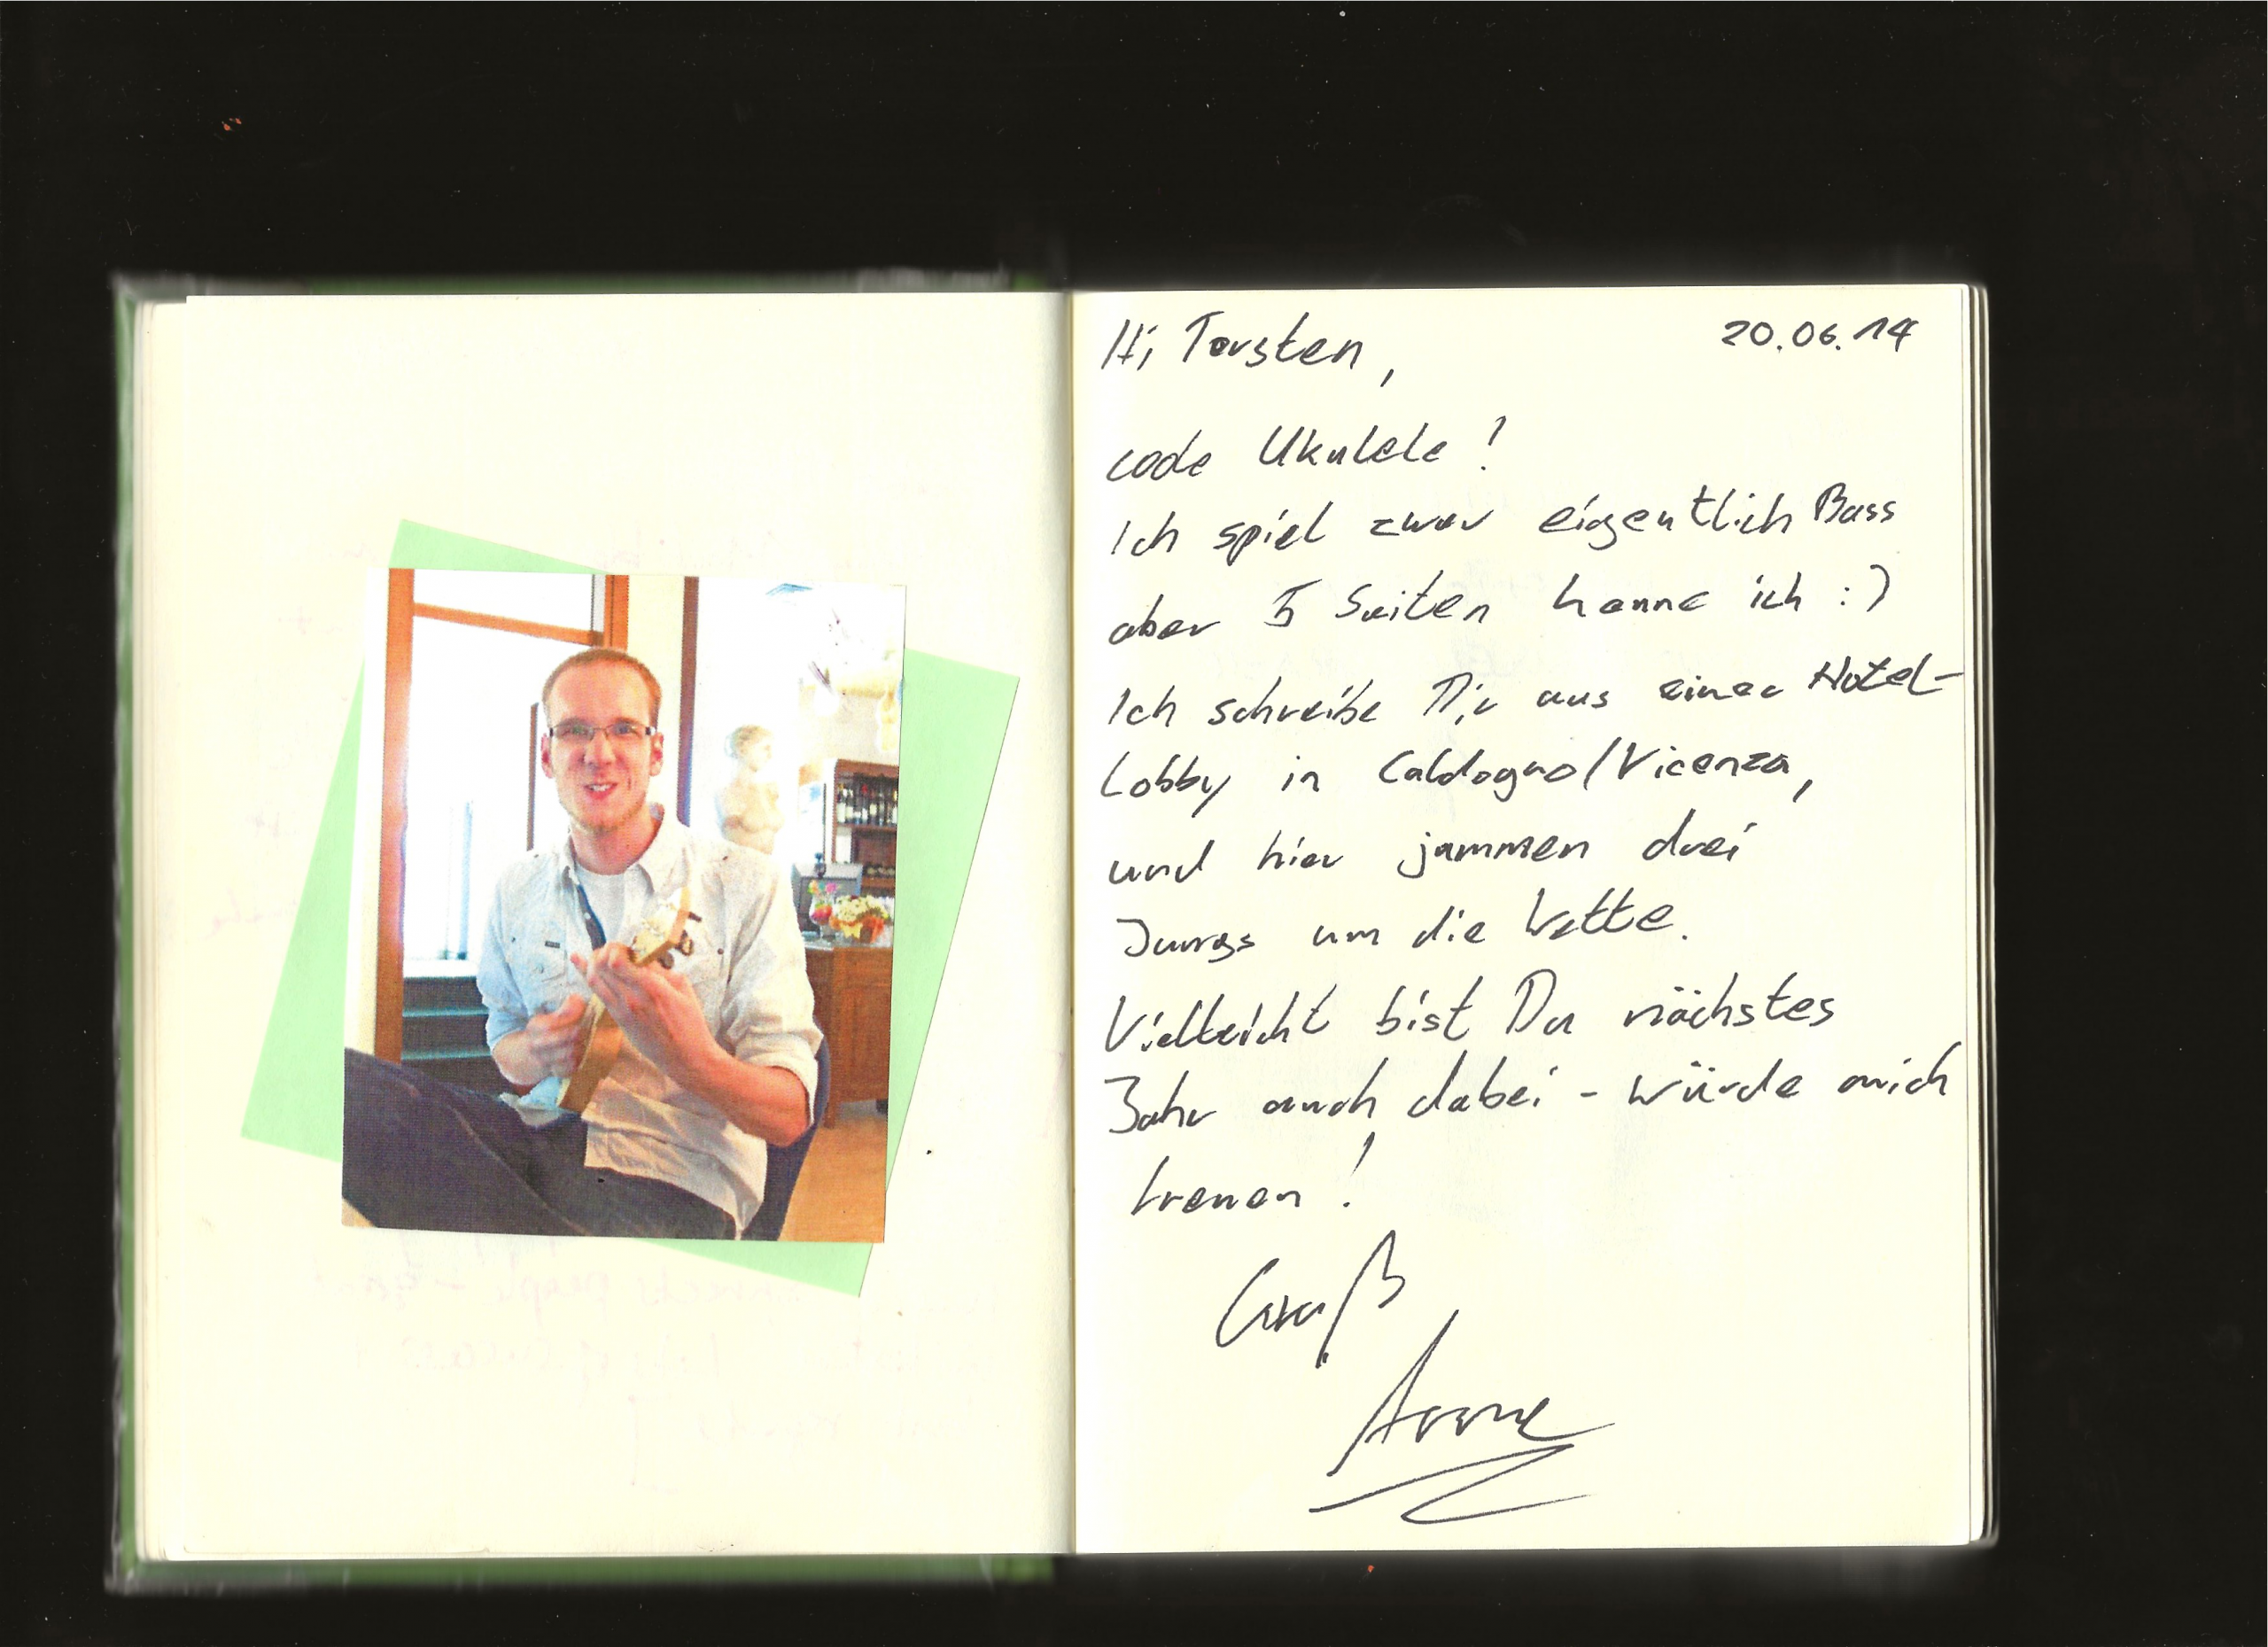 Hi Torsten,
20.06.14
coole Ukulele!
Ich spiel zwar eigentlich Bass
aber 5 Saiten kenne ich :)
Ich schreibe Dir aus einer Hotel-
Lobby in Caldogno/Vicenza,
und hier jammen drei
Jungs um die Wette.
Vielleicht bist Du nächstes
Jahr auch dabei - würde mich
freuen!
Gruß